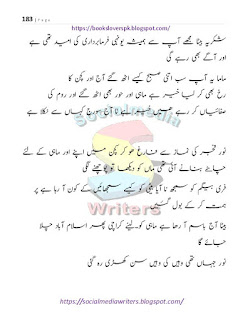 183 | P a g e
https://booksloverspk.blogspot.com/
شکریہ بیٹا مجھے آپ سے ہمیشہ یونہی فرمابرداری کی امید تھی ہے
اور آگے بھی رہے گی
ماما یہ آپ سب اتنی صبح کیسے اٹھ گئے آج اور کچن کا
رخ بھی کر لیا خیر ہے ماہی اور حور بھی اٹھ گئے اور روم کی
صفائیاں کر رہے ہیں خیر ہے نا آج سورج کہاں سے نکلا ہے
نور فجر کی نماز سے فارغ ہو کر کچن میں اپنے اور ماہی کے لئے
چائے بنانے آئی تھی ماں کو دیکھا تو پوچھنے لگی
فری بیگم کو سمجھ نا آیا بیٹی کو کیسے سمجھائیں کے کون آ رہا ہے پر
ہمت کر کے بول گئیں
بیٹا آج باسم آ رہا ہے ماہی کو لینے کراچی پھر اسلام آباد چلا
جائے گا
نور جہاں تھی وہیں کی وہیں سن کھڑی رہ گئی
Social Media
Writers
https://socialmediawriters.blogspot.com/